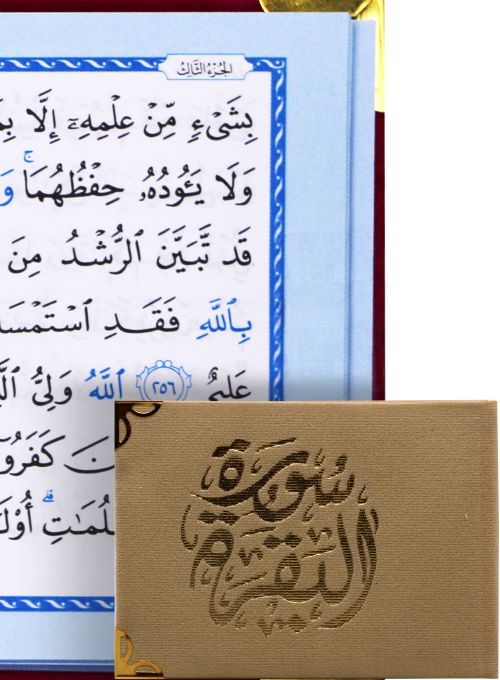 الجُزْءُ الثَّالِثُ
بِشَىْءٍ مِّنْ عِلْمِهِۦٓ إِلَّا
وَلَا يَـُٔودُهُۥ حِفْظُهُمَا ۚ
قَد تَّبَيَّنَ ٱلرُّشْدُ مِنَ
بِٱللَّهِ فَقَدِ ٱسْتَمْسَ
عَلِيمٌ ٢٥٦ ٱللَّهُ وَلِىُّ
كَفَرُو
لُمَـٰتِ ۗ أُوْلَ
سُورَة
البَقَرَة